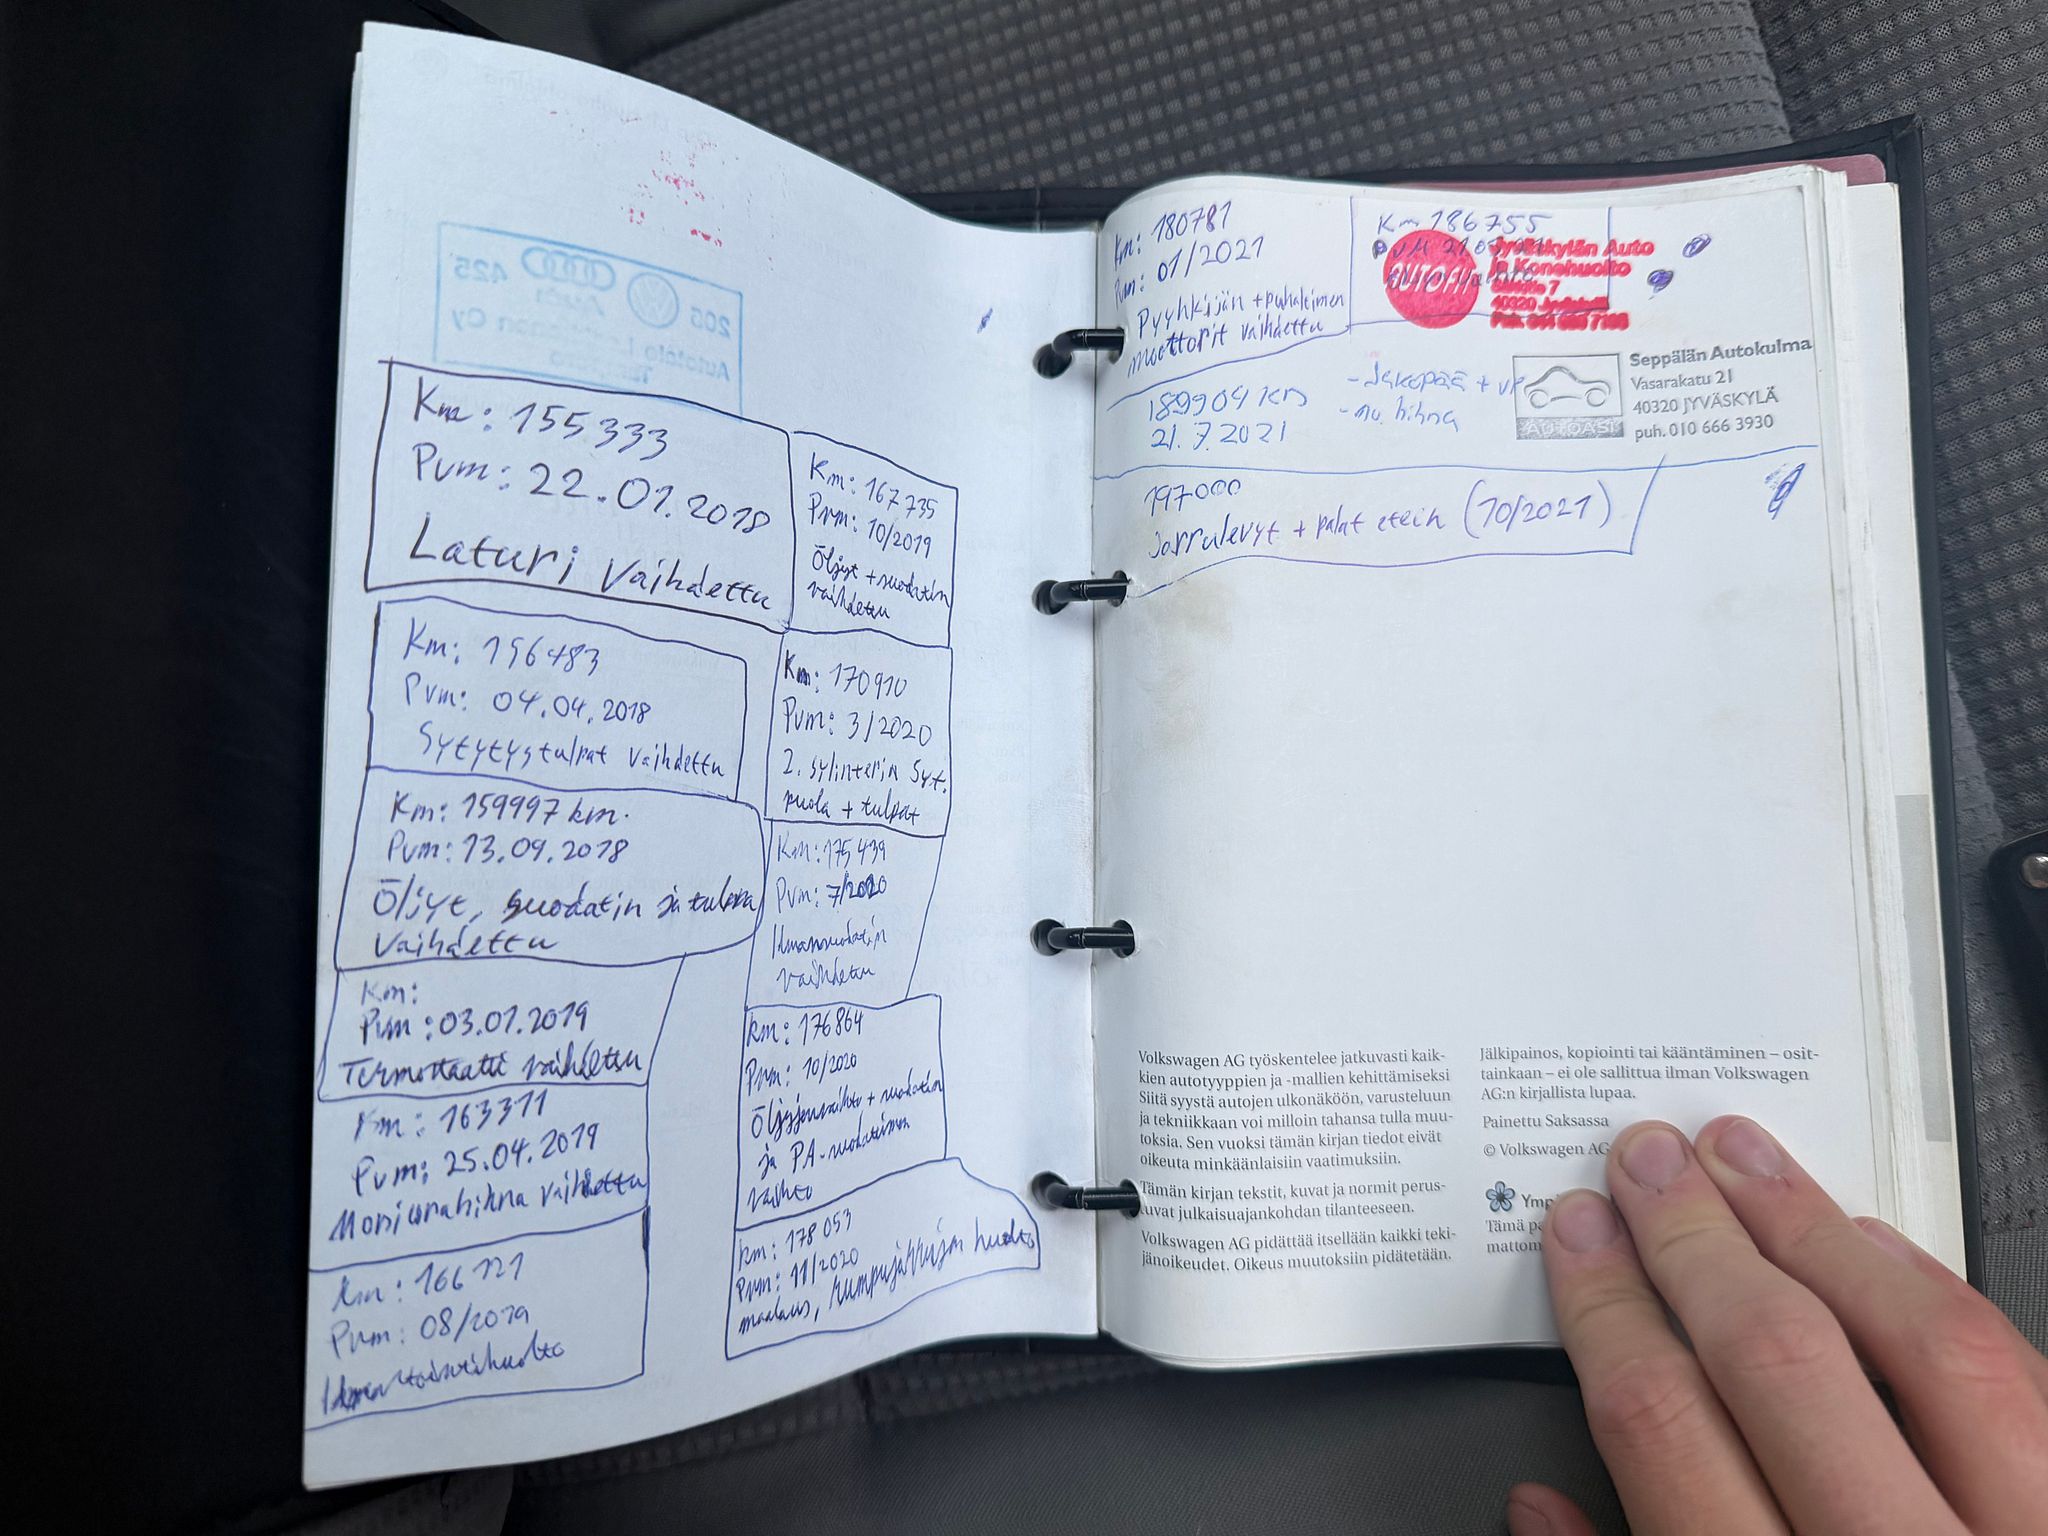 Km: 155333
Pvm: 22.01.2018
Laturi vaihdettu
Km: 156483
Pvm: 04.04.2018
Sytytystulpat vaihdettu
Km: 159997 km.
Pvm: 13.09.2018
Öljyt, suodatin ja tulppa
vaihdettu
Km:
Pvm: 03.01.2019
Termostaatti vaihdettu
Km: 163311
Pvm: 25.04.2019
Moniurahihna vaihdettu
Km: 166121
Pvm: 08/2019
Ilmastointihuolto
Km: 167735
Pvm: 10/2019
Öljyt + suodatin
vaihdettu
Km: 170910
Pvm: 3/2020
2. sylinterin syt.
puola + tulpat
Km: 175439
Pvm: 7/2020
Ilmansuodatin
vaihdettu
Km: 176864
Pvm: 10/2020
Öljyjenvaihto + suodatin
ja PA-suodattimen
vaihto
Km: 178053
Pvm: 11/2020
maalaus, rumpujarrujen huolto
Km: 180781
Pvm: 01/2021
Pyyhkijän + puhaltimen
moottorit vaihdettu
Km 186755
Jyväskylän Auto
ja Konehuolto
AUTOFIT
189904 KM
21.7.2021
- Jakopää + vp
- mu. hihna
Seppälän Autokulma
Vasarakatu 21
40320 JYVÄSKYLÄ
puh. 010 666 3930
AUTOASI
197000
Jarrulevyt + palat eteen (10/2021)
Volkswagen AG työskentelee jatkuvasti kaik-
kien autotyyppien ja -mallien kehittämiseksi
Siitä syystä autojen ulkonäköön, varusteluun
ja tekniikkaan voi milloin tahansa tulla muu-
toksia. Sen vuoksi tämän kirjan tiedot eivät
oikeuta minkäänlaisiin vaatimuksiin.
Tämän kirjan tekstit, kuvat ja normit perus-
tuvat julkaisuajankohdan tilanteeseen.
Volkswagen AG pidättää itsellään kaikki teki-
jänoikeudet. Oikeus muutoksiin pidätetään.
Jälkipainos, kopiointi tai kääntäminen – osit-
tainkaan – ei ole sallittua ilman Volkswagen
AG:n kirjallista lupaa.
Painettu Saksassa
© Volkswagen AG
Tämä